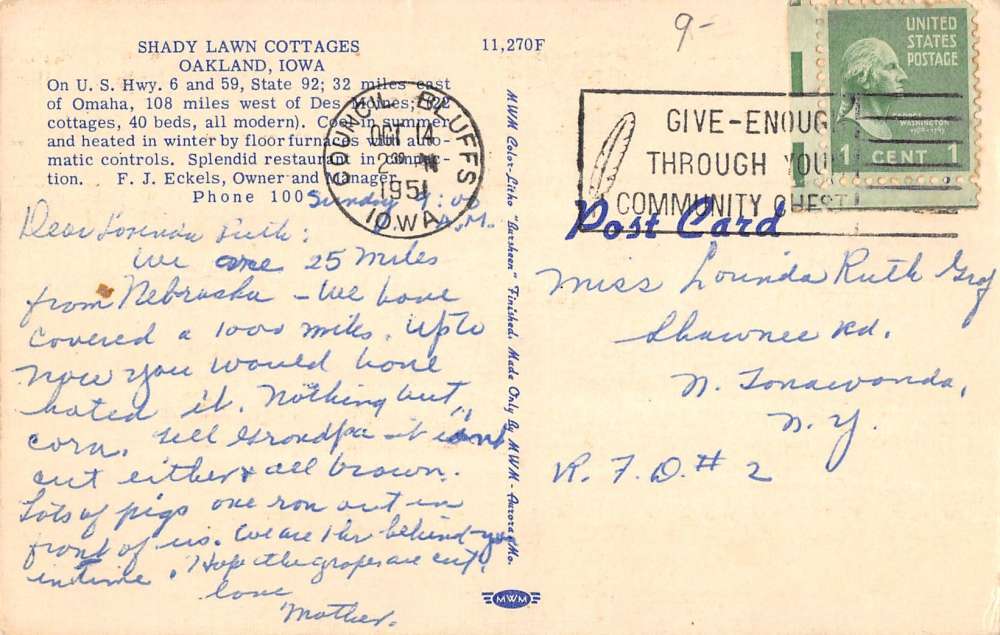 SHADY LAWN COTTAGES
OAKLAND, IOWA
On U. S. Hwy. 6 and 59, State 92; 32 miles east
of Omaha, 108 miles west of Des Moines; 
cottages, 40 beds, all modern). Cool in summer
and heated in winter by floor furnaces with auto-
matic controls. Splendid restaurant in connec-
tion. F. J. Eckels, Owner and Manager.
Phone 100
11,270F
9-
COUNCIL BLUFFS
OCT 14
2 30 PM
1951
IOWA
GIVE-ENOUGH
THROUGH YOUR
COMMUNITY CHEST
UNITED
STATES
POSTAGE
WASHINGTON
1 CENT 1
Post Card
Sunday 9:00
A.M.
Dear Lorinda Ruth:
We are 25 miles
from Nebraska - We have
covered a 1000 miles. Up to
now you would have
hated it. Nothing but
corn. Tell Grandpa it isn't
cut either & all brown.
Lots of pigs one ran out in
front of us. We are 1 hr behind you
in time. Hope the grapes are cut.
love
Mother.
MWM Color-Litho "Darsheen" Finished. Made Only By MWM - Aurora, Mo.
MWM
Miss Lorinda Ruth
Shawnee Rd.
N. Tonawanda,
N. Y.
R. F. D. # 2